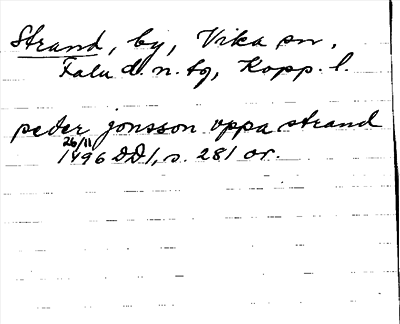 Strand, by, Vika sn,
Falu d. n. tg, Kopp. l.
peder jonsson vppa strand
26/11
1496 DD1, s. 281 or.